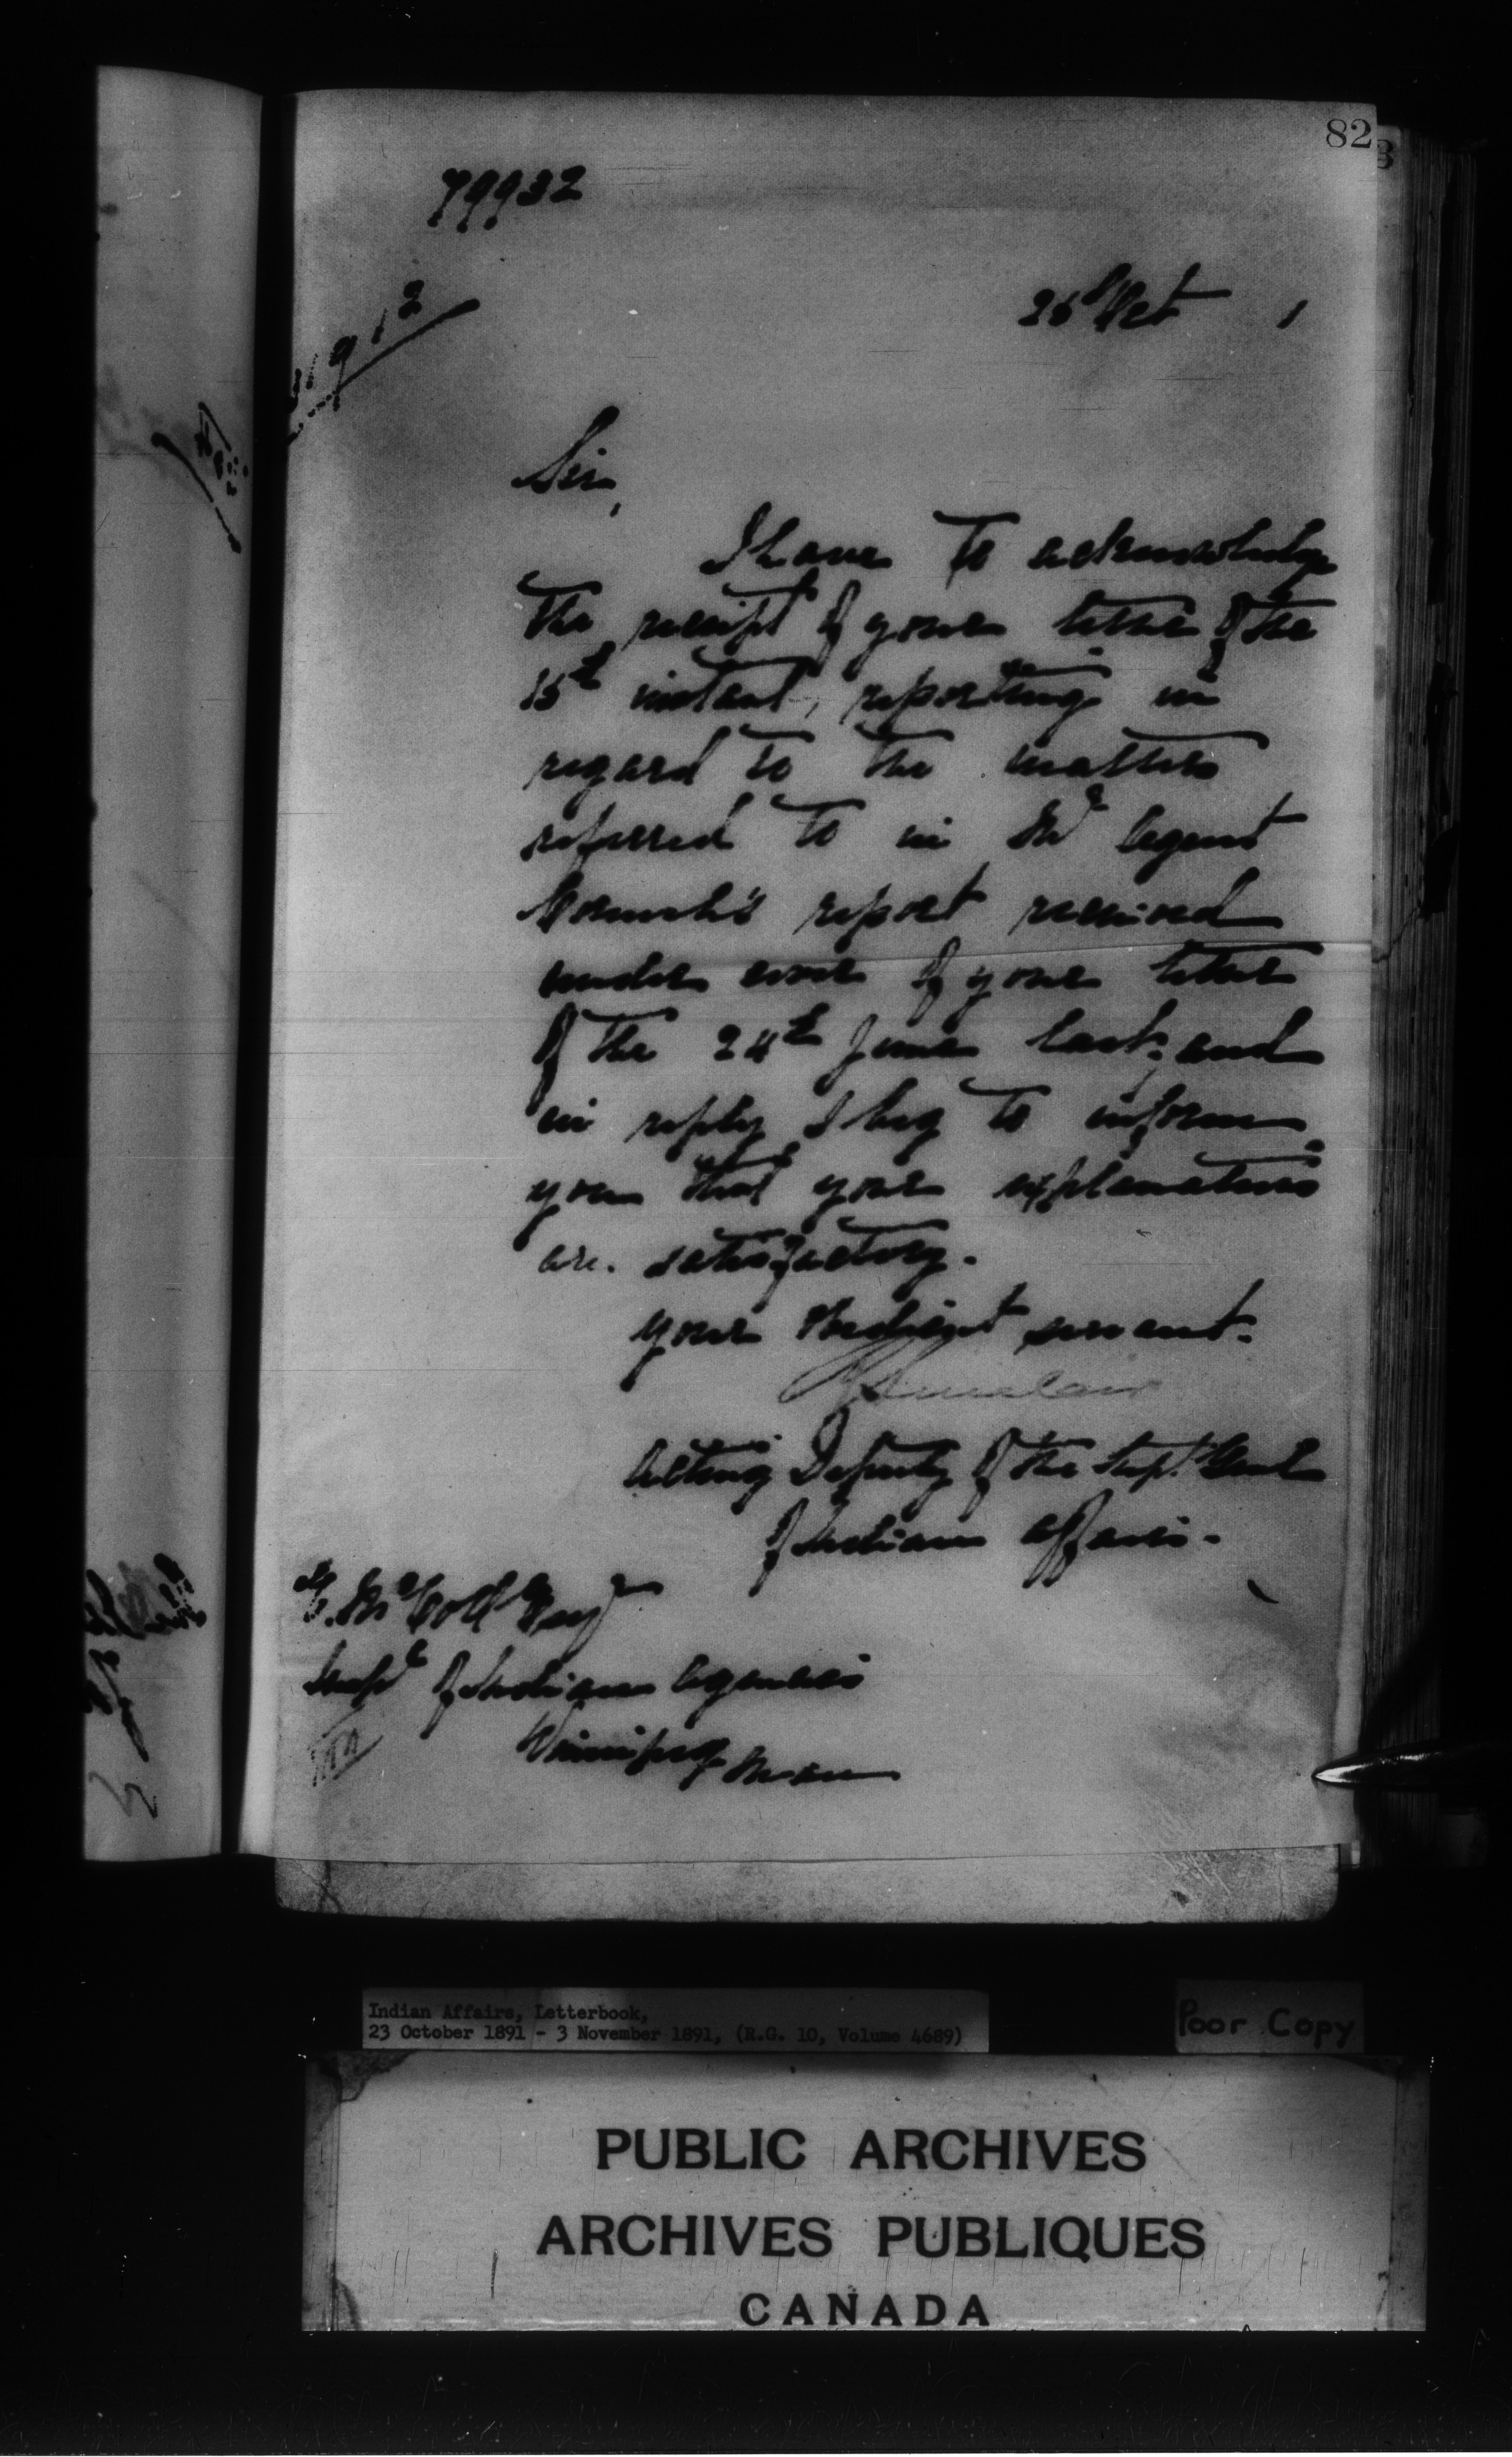 82
79932
26 Oct 1
Sir,
I have to acknowledge
the receipt of your letter of the
15th instant, reporting in
regard to the matters
referred to in Mr Agent
report received
under cover of your letter
of the 24th June last, and
in reply I beg to inform
you that your explanations
are satisfactory.
Your obedient servant.
Acting Deputy of the Supt. Genl
of Indian Affairs.
E. McColl Esqr
Inspr of Indian Agencies
Winnipeg Man
Indian Affairs, Letterbook,
23 October 1891 - 3 November 1891, (R.G. 10, Volume 4689)
Poor Copy
PUBLIC ARCHIVES
ARCHIVES PUBLIQUES
CANADA